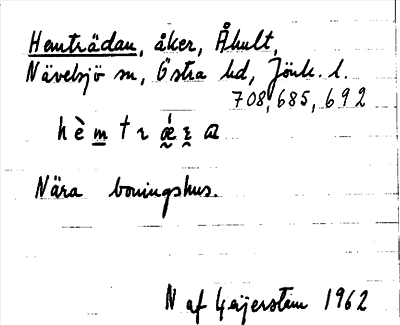 Hemträdan, åker, Åhult,
Nävelsjö sn, Östra hd, Jönk. l.
708, 685, 692
Nära boningshus.
N af Geijerstam 1962